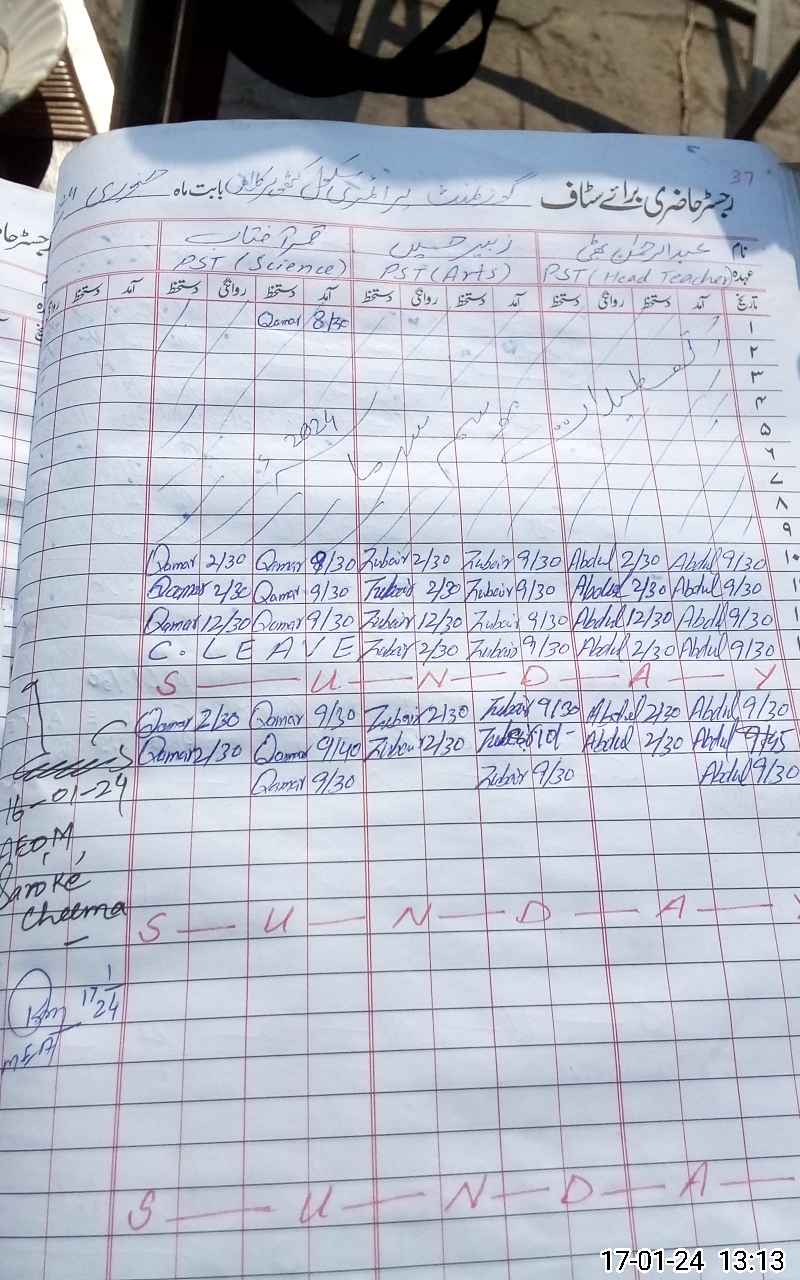 37
رجسٹر حاضری برائے سٹاف گورنمنٹ پرائمری سکول بابت ماہ جنوری
نام عبدالرحمٰن بھٹی زبیر حسین قمر آفتاب
عہدہ PST (Head Teacher) PST (Arts) PST (Science)
تاریخ آمد دستخط روانگی دستخط آمد دستخط روانگی دستخط آمد دستخط روانگی دستخط آمد دستخط
۱ Qamar 8/30
۲
۳
۴
۵
۶
۷
۸
۹
تعطیلات موسم سرما 2024
Qamar 2/30 Qamar 8/30 Zubair 2/30 Zubair 9/30 Abdul 2/30 Abdul 9/30 ۱۰
Qamar 2/30 Qamar 9/30 Zubair 2/30 Zubair 9/30 Abdul 2/30 Abdul 9/30
Qamar 12/30 Qamar 9/30 Zubair 12/30 Zubair 9/30 Abdul 12/30 Abdul 9/30
C. LEAVE Zubair 2/30 Zubair 9/30 Abdul 2/30 Abdul 9/30
S — U — N — D — A — Y
Qamar 2/30 Qamar 9/30 Zubair 2/30 Zubair 9/30 Abdul 2/30 Abdul 9/30
Qamar 2/30 Qamar 9/40 Zubair 2/30 Zubair 10/- Abdul 2/30 Abdul 9/45
Qamar 9/30 Zubair 9/30 Abdul 9/30
16-01-24
AEO, M,
Saroke
Cheema
S — U — N — D — A — Y
17/1/24
MEA
S — U — N — D — A —
17-01-24 13:13